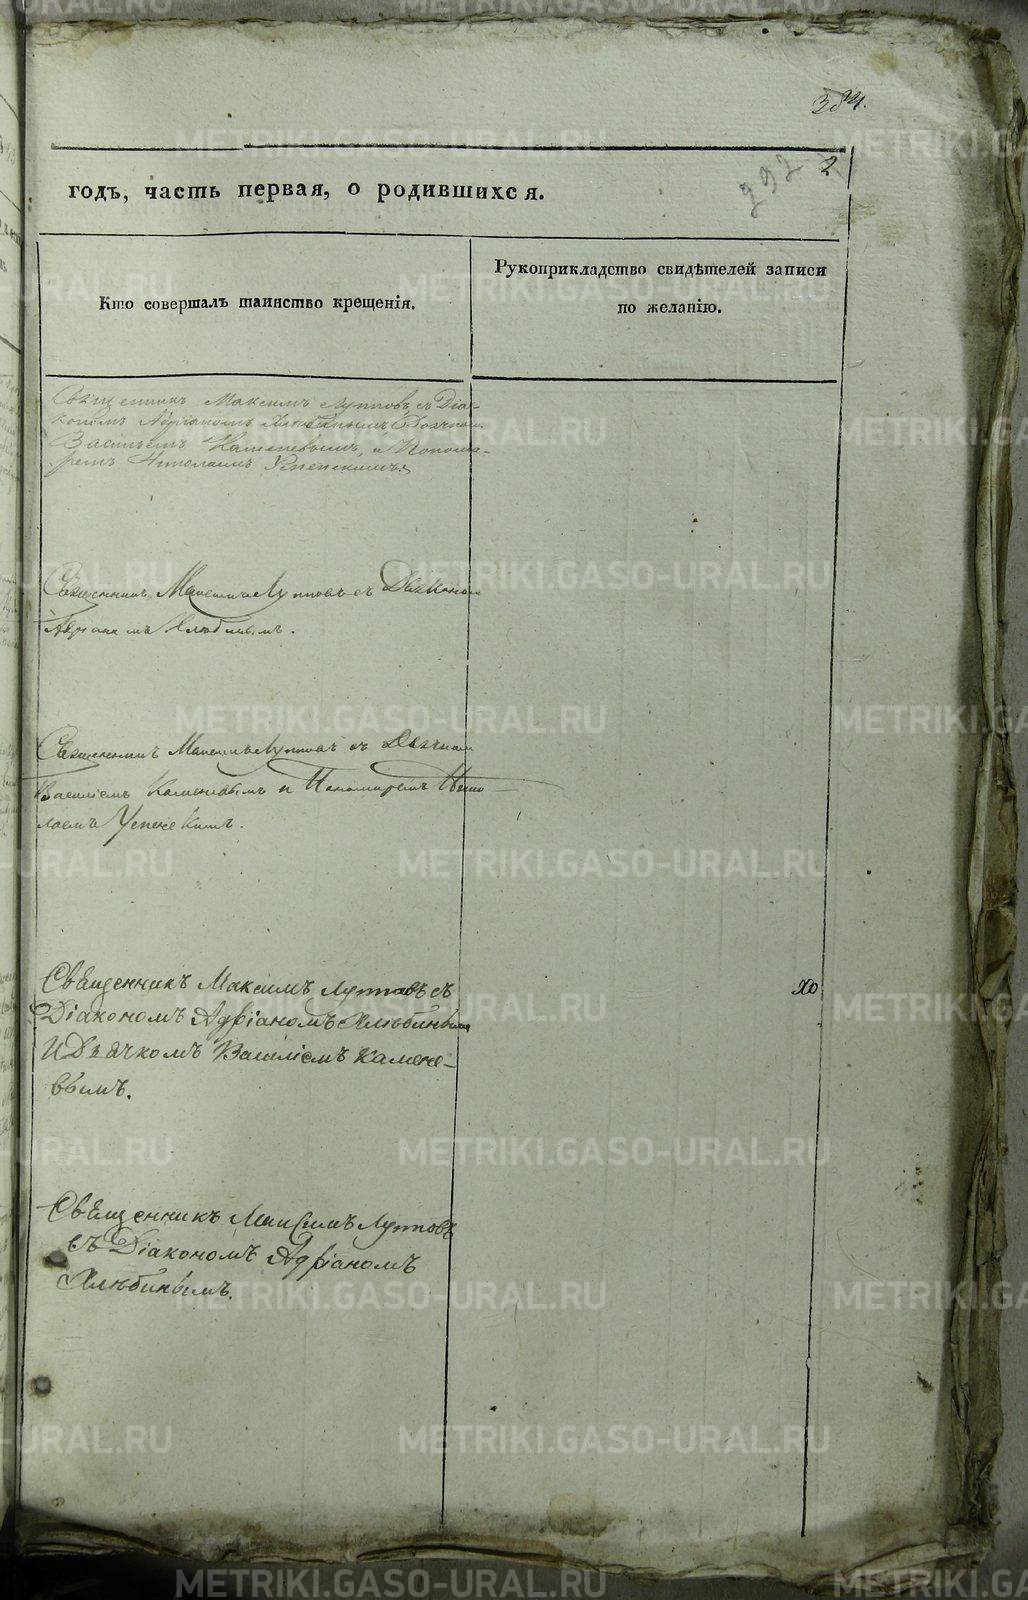 годъ, часть первая, о родившихся.
2
Кто совершалъ таинство крещенія.
Рукоприкладство свидѣтелей записи
по желанію.
Священникъ Максимъ Лупповъ съ Діа-
кономъ Адріаномъ Хлѣбинымъ Дьячкомъ
Васильемъ Каменевымъ, и Понома-
ремъ Николаемъ Успенскимъ
Священникъ Максимъ Лупповъ съ Діакономъ
Адріаномъ Хлѣбинымъ.
Священникъ Максимъ Луппов съ Дьячкомъ
Василіемъ Каменевымъ и Пономаремъ Нико-
лаемъ Успенскимъ.
Священникъ Максимъ Лупповъ съ
Діакономъ Адріаномъ Хлѣбинымъ
И Дьячкомъ Василіемъ Камене-
вымъ.
Священникъ Максимъ Лупповъ
съ Діакономъ Адріаномъ
Хлѣбинымъ.
METRIKI.GASO-URAL.RU